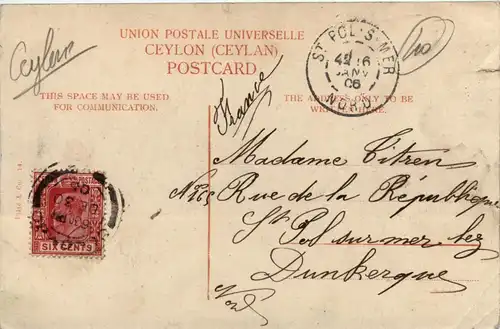 Ceylan
UNION POSTALE UNIVERSELLE
CEYLON (CEYLAN)
POSTCARD
THIS SPACE MAY BE USED
FOR COMMUNICATION.
THE ADDRESS ONLY TO BE
WRITTEN HERE.
ST POL-S-MER
JANV
06
NORD
France
Madame Titren
Rue de la République
St Pol sur mer lez
Dunkerque
Nord
POSTAGE
SIX CENTS